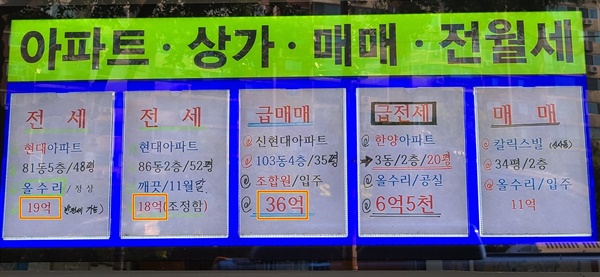 아파트 · 상가 · 매매 · 전월세
전 세
현대아파트
81동5층/48평
올수리/정상
19억 반전세 가능)
전 세
현대아파트
86동2층/52평
깨끗/11월말
18억(조정함)
급매매
@ 신현대아파트
@ 103동4층/35평
@ 조합원/입주
@ 36억
급전세
@ 한양아파트
→3동/2층/20평
@ 올수리/공실
@ 6억5천
매 매
@ 칼릭스빌
@ 34평/2층
@ 올수리/입주
11억